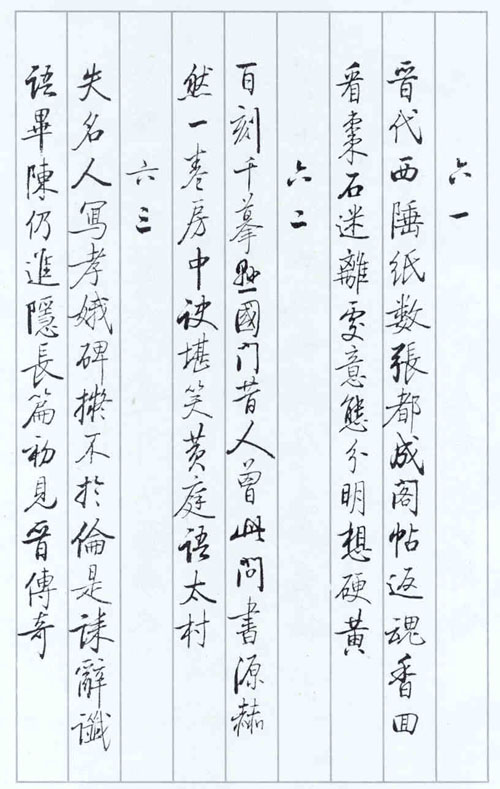 六一
晉代西陲紙数張都成閣帖返魂香回
看棗石迷離處意態分明想硬黃
六二
百刻千摹縣國門昔人曾此問書源赫
然一卷房中訣堪笑黃庭語太村
六三
失名人寫孝娥碑擬不於倫是誄辭讖
語畢陳仍進隱長篇初見晉傳奇